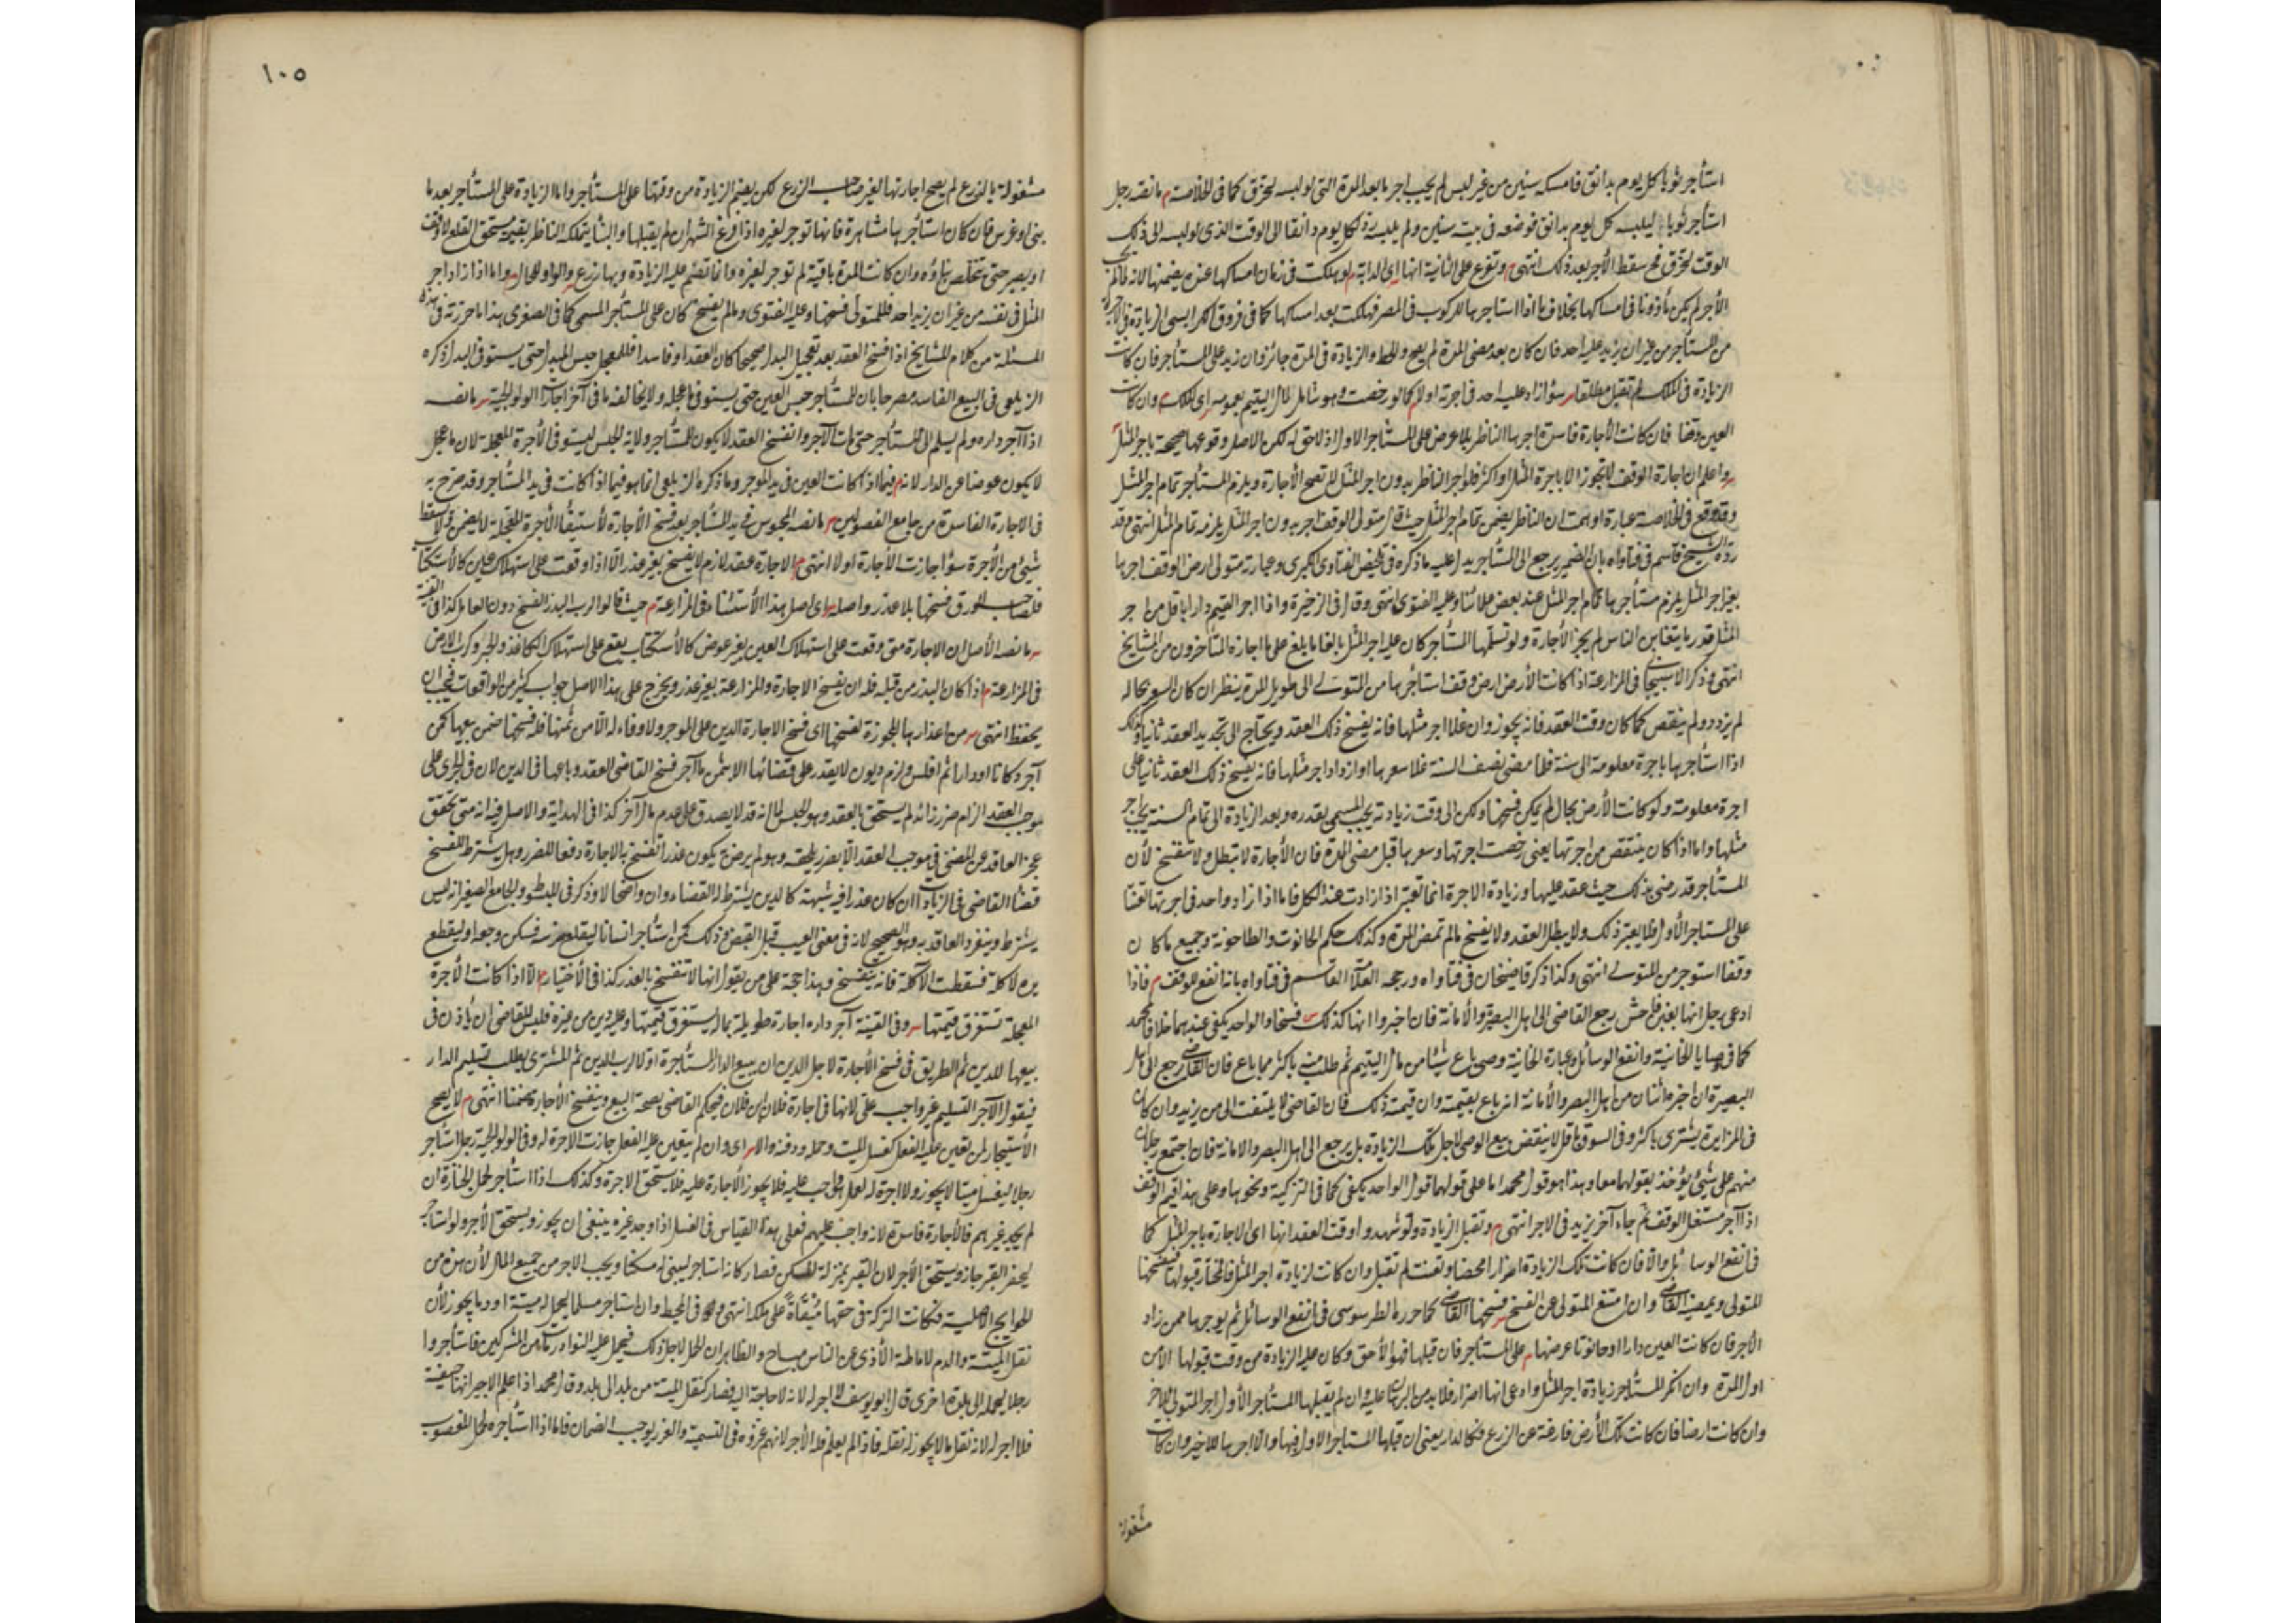 استأجر ثوبا كل يوم بدانق فامسكه سنين من غير لبس لم يجب اجر ما بعد المدة التي لو لبسه لتخرق كما في الخلاصة م ما نصه رجل
استأجر ثوبا ليلبسه كل يوم بدانق فوضعه في بيته سنين ولم يلبسه لكل يوم دانقا الى الوقت الذي لو لبسه الى ذلك
الوقت لتخرق فح سقط الأجر بعد ذلك انتهى م وتفرع على الثانية انها اى الدابة لو هلكت في زمان امساكها عنده يضمنها لانه لما لم يجب
الأجر لم يكن مأذونا في امساكها بخلاف ما اذا استأجرها للركوب في المصر فهلكت بعد امساكها كما في فروق الكرابيسي الزيادة في الاجرة
من المستأجر من غير ان يزيد عليه احد فان كان بعد مضي المدة لم يصح والحط والزيادة في المدة جائز وان زيد على المستأجر فان كانت
الزيادة في الملك لم تقبل مطلقا سواء زاد عليه احد في اجرته اولا كما لو رخصت وهو شامل لمال اليتيم بعمومه اى الملك وان كانت
العين وقفا فان كانت الأجارة فاسدة اجرها الناظر بلا عرض على المستأجر الاول اذ لا حق له لكن الاصل وقوعها صحيحة باجر المثل
واعلم ان اجارة الوقف لا تجوز الا باجرة المثل او اكثر فلو اجر الناظر بدون اجر المثل لا تصح الأجارة ويلزم المستأجر تمام اجر المثل
وقد وقع في الخلاصة عبارة اوهمت ان الناظر يضمن تمام اجر المثل حيث قال متولى الوقف اجر بدون اجر المثل يلزمه تمام المثل انتهى وقد
رده الشيخ قاسم في فتاواه بان الضمير يرجع الى المستأجر يدل عليه ما ذكره في تلخيص الفتاوى الكبرى وعبارته متولى ارض الوقف اجرها
بغير اجر المثل يلزم مستأجرها تمام اجر المثل عند بعض علمائنا وعليه الفتوى انتهى وقال في الذخيرة واذا اجر القيم دارا باقل من اجر
المثل قدر ما يتغابن الناس لم يجز الأجارة ولو تسلمها المستأجر كان عليه اجر المثل بالغا ما بلغ على ما اجازه المتأخرون من المشايخ
انتهى وذكر الاسبيجابي في المزارعة اذا كانت الأرض ارض وقف استأجرها من المتولي الى طويل المدة ينظر ان كان السعر بحاله
لم يزدد ولم ينقص كما كان وقت العقد فانه يجوز وان غلا اجر مثلها فانه يفسخ ذلك العقد ويحتاج الى تجديد العقد ثانيا وكذلك
اذا استأجرها باجرة معلومة الى سنة فلما مضى نصف السنة غلا سعرها او ازداد اجر مثلها فانه يفسخ ذلك العقد ثانيا على
اجرة معلومة ولو كانت الأرض بحال لم يمكن فسخها ولكن الى وقت زيادته يجب المسمى بقدره وبعد الزيادة الى تمام السنة يجب اجر
مثلها واما اذا كان ينتقص من اجرتها يعني رخصت اجرتها وسعرها قبل مضي المدة فان الأجارة لا تبطل ولا تنفسخ لأن
المستأجر قد رضى بذلك حيث عقد عليها وزيادة الاجرة انما تعتبر اذا زادت عند الكل فاما اذا زاد واحد في اجرتها تعنتا
على المستاجر الأول فلا يعتبر ذلك ولا يبطل العقد ولا يفسخ مالم تمض المدة وكذلك حكم الحانوت والطاحونة وجميع ما كان
وقفا استوجر من المتولي انتهى وكذا ذكر قاضيخان في فتاواه ورجحه العلامة القاسم في فتاواه بانه انفع للوقف م فاذا
ادعى رجل انها بغبن فاحش رجع القاضى الى اهل البصيرة والأمانة فان اخبروا انها كذلك فسخها والواحد يكفي عندهما خلافا لمحمد
كما في وصايا الخانية وانفع الوسائل وعبارة الخانية وصى باع شيئا من مال اليتيم ثم طلب منه باكثر مما باع فان القاضي يرجع الى اهل
البصيرة ان اخبره اثنان من اهل البصر والأمانة انه باع بقيمته وان قيمته ذلك فان القاضى لا يلتفت الى من يزيد وان كان
في المزايدة يشترى باكثر وفي السوق باقل لا ينقض بيع الوصى لاجل تلك الزيادة بل يرجع الى اهل البصر والامانة فان اجتمع رجلان
منهم على شيئ يؤخذ بقولهما معا وهذا هو قول محمد اما على قولهما قول الواحد يكفي كما في التزكية ونحوها وعلى هذا قيم الوقف
اذا آجر مستغل الوقف ثم جاء آخر يزيد في الاجر انتهى م وتقبل الزيادة ولو شهدوا وقت العقد انها اى الاجارة باجر المثل كما
في انفع الوسائل والا فان كانت تلك الزيادة اضرارا محضا وتعنتا لم تقبل وان كانت لزيادة اجر المثل فالمختار قبولها فيفسخها
المتولى ويمضيه القاضي وان امتنع المتولى عن الفسخ فسخها القاضي كما حرره الطرسوسى في انفع الوسائل ثم يوجرها ممن زاد
الأجر فان كانت العين دارا او حانوتا عرضها على المستأجر فان قبلها فهو الأحق وكان عليه الزيادة من وقت قبولها لا من
اول المدة وان انكر المستأجر زيادة اجر المثل وادعى انها اضرار فلا بد من البرهان عليه وان لم يقبلها المستأجر الأول اجر المتولى للآخر
وان كانت ارضا فان كانت تلك الأرض فارغة عن الزرع فكالدار يعني ان قبلها المستاجر الاول فبها والا اجرها للاخير وان كانت
مشغولة
١٠٥
مشغولة بالزرع لم يصح اجارتها لغير صاحب الزرع لكن يضم الزيادة من وقتها على المستأجر واما الزيادة على المستأجر بعد ما
بنى او غرس فان كان استأجرها مشاهرة فانها توجر لغيره اذا فرغ الشهر ان لم يقبلها والبنا يتملكه الناظر بقيمته مستحق القلع للوقف
او يصبر حتى يتخلص بناؤه وان كانت المدة باقية لم توجر لغيره وانما تضم عليه الزيادة وبها زرع والواو للحال واما اذا زاد اجر
المثل في نفسه من غير ان يزيد احد فللمتولى فسخها وعليه الفتوى ومالم يفسخ كان على المستأجر المسمى كما في الصغرى هذا ما حررته في هذه
المسئلة من كلام المشايخ اذا فسخ العقد بعد تعجيل البدل صحيحا كان العقد او فاسدا فللمعجل حبس المبدل حتى يستوفي البدل ذكره
الزيلعي في البيع الفاسد مصرحا بان للمستأجر حبس العين حتى يستوفي ما عجله ولا يخالفه ما في آخر اجارات الولوالجية ما نصه
اذا آجر داره ولم يسلم الى المستأجر حتى مات الآجر وانفسخ العقد لا يكون للمستأجر ولاية الحبس ليستوفى الأجرة المعجلة لان ما عجل
لا يكون عوضا عن الدار لانه م فيما اذا كانت العين في يد الموجر وما ذكره الزيلعي انما هو فيما اذا كانت في يد المستأجر وقد صرح به
في الاجارة الفاسدة من جامع الفصولين ما نصه المحبوس في يد المستأجر بعد فسخ الأجارة لأستيفاء الأجرة المعجلة لا يضمن ولا يسقط
شيئ من الأجرة سواء جازت الأجارة اولا انتهى م الاجارة عقد لازم لا يفسخ بغير عذر الا اذا وقعت على استهلاك عين كالأستكتاب
فلصاحب الورق فسخها بلا عذر واصله اى اصل هذا الأستثناء في المزارعة م حيث قالوا لرب البذر الفسخ دون العامل كذا في القنية
ما نصه الأصل ان الاجارة متى وقعت على استهلاك العين بغير عوض كالأستكتاب يقع على استهلاك الكاغذ والحبر وكرب الارض
في المزارعة م اذا كان البذر من قبله فله ان يفسخ الاجارة والمزارعة بغير عذر ويخرج على هذا الاصل جواب كثير من الواقعات فيجب ان
يحفظ انتهى من اعذارها المجوزة لفسخها اى فسخ الاجارة الدين على الموجر ولا وفاء له الا من ثمنها فله فسخها ضمن بيعها كمن
آجر دكانا او دارا ثم افلس ولزم ديون لا يقدر على قضائها الا بثمن ما آجر فسخ القاضى العقد وباعها في الدين لان في الجرى على
موجب العقد الزام ضرر زائد لم يستحق بالعقد وهو الحبس لانه قد لا يصدق على عدم مال آخر كذا في الهداية والاصل فيه انه متى تحقق
عجز العاقد عن المضى في موجب العقد الا بضرر يلحقه وهو لم يرض به يكون عذرا تفسخ به الاجارة دفعا للضرر وهل يشترط للفسخ
قضا القاضى في الزيادات ان كان عذرا فيه شبهة كالدين يشترط له القضاء وان واضحا لا وذكر في المبسوط والجامع الصغير انه ليس
يشترط وينفرد العاقد به وهو الصحيح لانه في معنى العيب قبل القبض وذلك كمن استأجر انسانا ليقلع ضرسه فسكن وجعه او ليقطع
يده لآكلة فسقطت الآكلة فانه ينفسخ وهذا حجة على من يقول انها لا تنفسخ بالعذر كذا في الأختيار الا اذا كانت الأجرة
المعجلة تستغرق قيمتها وفي القنية آجر داره اجارة طويلة بمال يستغرق قيمتها وعليه دين من غيره فليس للقاضى ان يأذن في
بيعها للدين ثم الطريق في فسخ الأجارة لاجل الدين ان يبيع الدار المستأجرة اولا لرب الدين ثم المشترى يطلب تسليم الدار
فيقول الآجر التسليم غير واجب على لانها في اجارة فلان ابن فلان فيحكم القاضى بصحة البيع وينفسخ الأجارة ضمنا انتهى م لا يصح
الأستيجار لمن تعين عليه الفعل كغسل الميت وحمله ودفنه والا اى وان لم يتعين عليه الفعل جازت الاجرة له وفي الولوالجية رجل استأجر
رجلا ليغسل ميتا لا يجوز ولا اجرة له لعمل هو واجب عليه فلا يجوز الأجارة عليه فلا يستحق الاجرة وكذلك اذا استأجر لحمل الجنازة ان
لم يجد غيرهم فالأجارة فاسدة لانه واجب عليهم فعلى هذا القياس في الغسل اذا وجد غيره ينبغي ان يجوز ويستحق الأجر ولو استاجر
ليحفر القبر جاز ويستحق الأجر لان القبر بمنزلة المسكن فصار كانه استاجر ليبنى له مسكنا ويجب الاجر من جميع المال لأن هذه من
الحوايج الأصلية فكانت التركة في حقها مبقاة على ملكه انتهى وفي المحيط وان استاجر مسلما ليحمل له ميتة او دما يجوز لأن
نقل الميتة والدم لاماطة الأذى عن الناس مباح والظاهر ان الحمل لاجل ذلك فيحمل عليه النوادر رهط من المشركين فاستأجروا
رجلا يحمله الى بلدة اخرى قال ابو يوسف لا اجر له لانه لا حاجة اليه فصار كنقل الميتة من بلد الى بلد وقال محمد اذا علم الاجير انها جيفة
فلا اجر له لانه نقل ما لا يجوز له نقله فاذا لم يعلم فله الأجر لانهم غروه في التسمية والغرر يوجب الضمان فاما اذا استأجره لحمل المغصوب